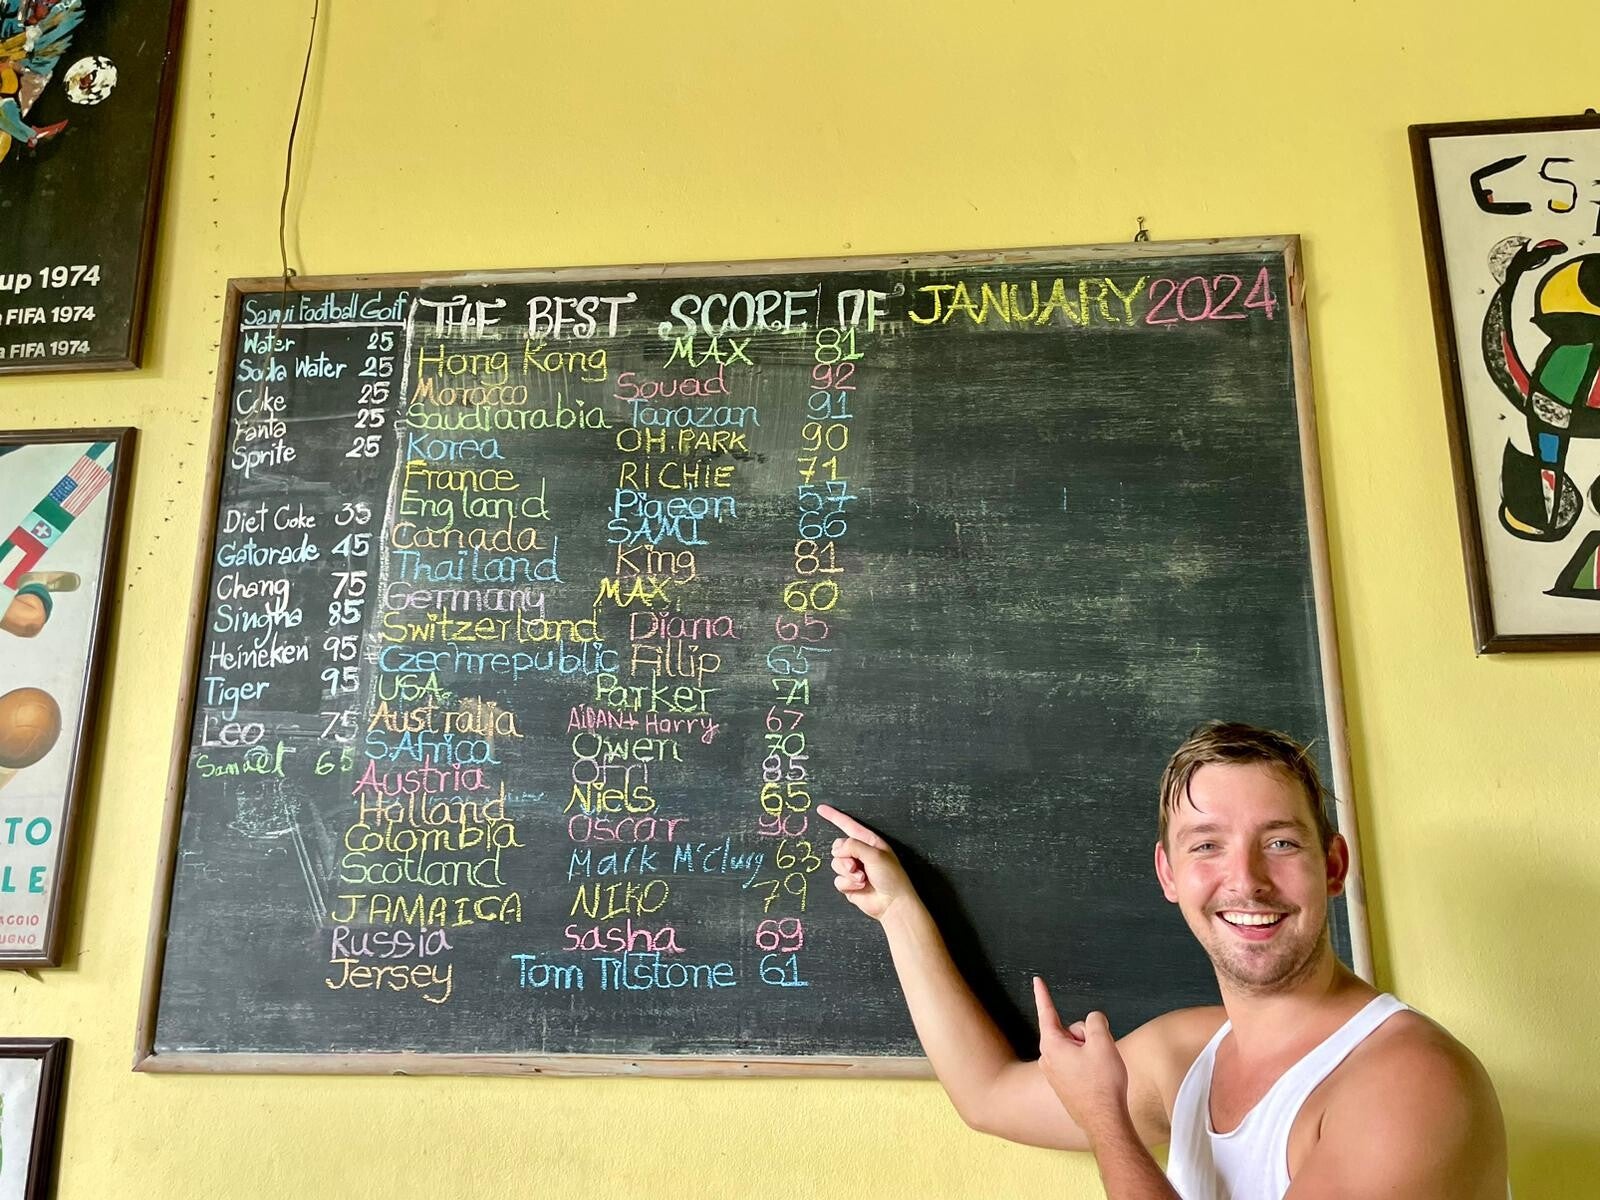 up 1974
FIFA 1974
a FIFA 1974
TO
LE
AGGIO
UGNO
Samui Football Golf
Water 25
Soda Water 25
Coke 25
Fanta 25
Sprite 25
Diet Coke 35
Gatorade 45
Chang 75
Singha 85
Heineken 95
Tiger 95
Leo 75
65
THE BEST SCORE OF JANUARY 2024
Hong Kong MAX 81
Morocco Souad 92
Saudiarabia Tarazan 91
Korea OH.PARK 90
France RICHIE 71
England Pigeon 57
Canada SAMI 66
Thailand King 81
Germany MAX 60
Switzerland Diana 65
Czechrepublic Fillip 65
USA. Parker 71
Australia AiDAN+Harry 67
S.Africa Owen 70
Austria 85
Holland Niels 65
Colombia Oscar 90
Scotland Mark McClurg 63
JAMAICA NIKO 79
Russia Sasha 69
Jersey Tom Tilstone 61
ES